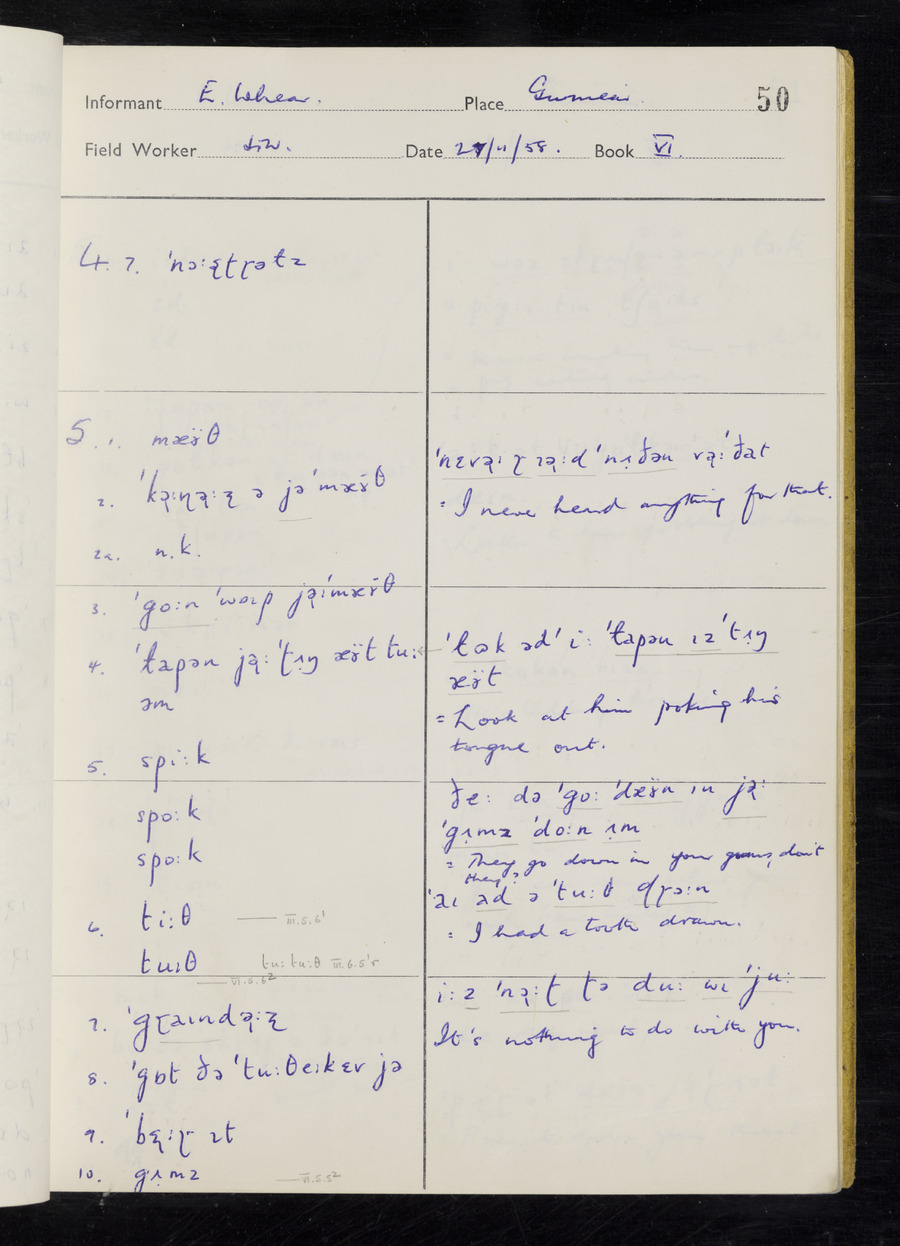 Informant E. Whear. Place Gwinear 50
Field Worker S.F.W. Date 27/11/58. Book VI.
4. 7. ˈnɔ:ɽtɽətz
5. 1. mæÿθ
2. ˈkɔ̣:ɳə̣:ɽ ə jəˈmæÿθ
2a. n.k.
3. ˈgo:n ˈwɒɪp jə̣:mæÿθ
4. ˈɫapən jə̣: ˈtɪŋ æÿt tu:
əm
5. spi:k
spo:k
spo:k
6. ti:θ III.5.6¹
tu:θ tu: tu:θ III.6.5'r
VI.5.5²
7. ˈgɽaɪndə̣:ɽ
8. ˈgɒt ðə ˈtu:θeɪkɛv jə
9. ˈbɛ̣:ɽ ɪt
10. gʌ̣mz VI.5.5²
ˈnɛvə̣: ɽ ɪə̣:d ˈnʌ̣ðən və̣: ðat
= I never heard anything for that.
ˈɫɷk ədˈ i: ˈɫapən ɪz ˈtɪŋ
æÿt
= Look at him poking his
tongue out.
ðe: də ˈgo: ˈdæÿn ɪn jə̣:
ˈgʌ̣mz ˈdo:n əm
= They go down in your gums, don't
they?
ˈaɪ ad ə ˈtu:θ dɽɔ:n
= I had a tooth drawn.
i: z ˈnɔ̣:t tə du: wɪ ˈju:
It's nothing to do with you.